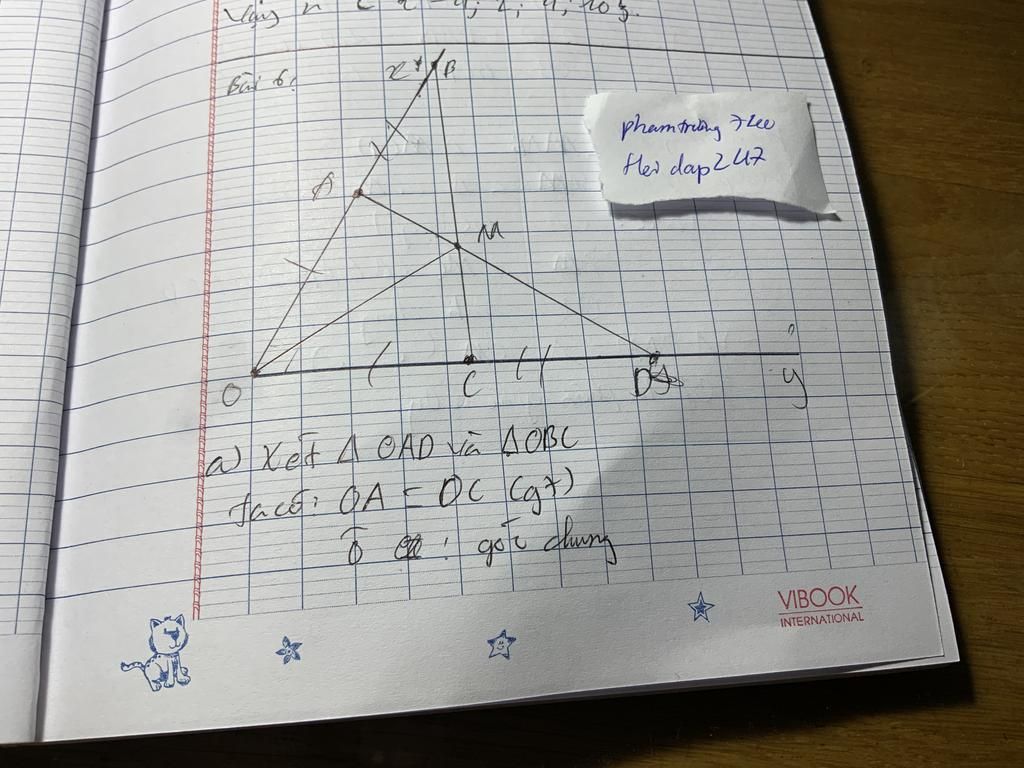 Vậy n ∈ {-4; 2; 4; 10}.
Bài 6:
x B
A
M
O C D y
phamtrường 7
Hoi dap247
a) Xét Δ OAD và ΔOBC
ta có: OA = OC (gt)
Ô : góc chung
VIBOOK
INTERNATIONAL